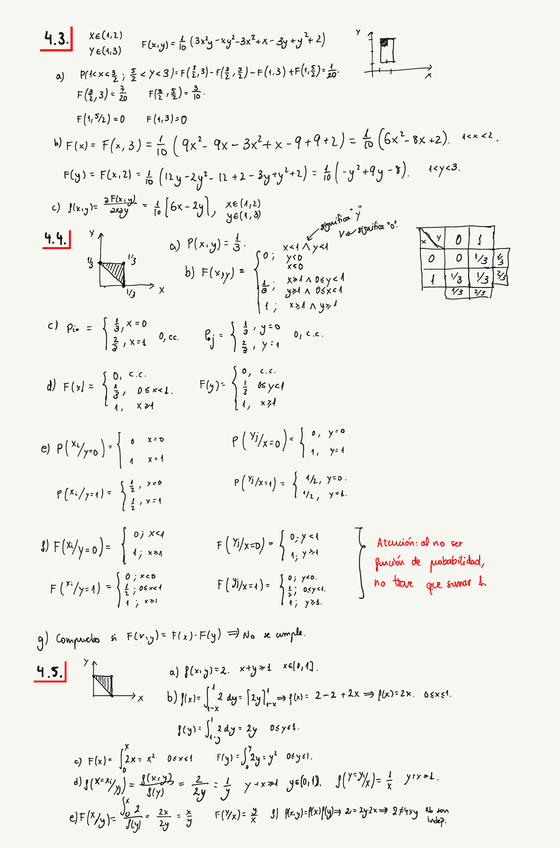 4.3.
X∈(1,2)
Y∈(1,3)
F(x,y) = 1/10 (3x²y - xy² - 3x² + x - 3y + y² + 2)
a) P(1<x<3/2 ; 5/2<y<3) = F(3/2,3) - F(3/2,5/2) - F(1,3) + F(1,5/2) = 1/20.
F(3/2,3) = 7/20 F(3/2,5/2) = 3/10.
F(1,5/2) = 0 F(1,3) = 0
b) F(x) = F(x,3) = 1/10 (9x² - 9x - 3x² + x - 9 + 9 + 2) = 1/10 (6x² - 8x + 2). 1<x<2.
F(y) = F(x,2) = 1/10 (12y - 2y² - 12 + 2 - 3y + y² + 2) = 1/10 (-y² + 9y - 8). 1<y<3.
c) f(x,y) = ∂F(x,y)/∂x∂y = 1/10 [6x - 2y], x∈(1,2) y∈(1,3)
4.4.
Y
1/3
1/3
1/3
X
a) P(x,y) = 1/3.
significa "y"
V ← significa "o".
b) F(x,y) = { 0; x<1 ∧ y<1
y<0
x<0
1/3; x≥1 ∧ 0≤y<1
y≥1 ∧ 0≤x<1
1; x≥1 ∧ y≥1
X Y 0 1
0 0 1/3 1/3
1 1/3 1/3 2/3
1/3 2/3
c) Pi. = { 1/3, x=0
2/3, x=1 0, cc.
P.j = { 1/3, y=0
2/3, y=1 0, c.c.
d) F(x) = { 0, c.c.
1/3, 0≤x<1.
1, x≥1
F(y) = { 0, c.c.
1/3 0≤y<1
1, x≥1
e) P(xi/y=0) = { 0 x=0
1 x=1
P(yj/x=0) = { 0, y=0
1, y=1
P(xi/y=1) = { 1/2, x=0
1/2, x=1
P(yj/x=1) = { 1/2, y=0.
1/2, y=1.
f) F(xi/y=0) = { 0; x<1
1; x≥1
F(yj/x=0) = { 0; y<1
1; y≥1
F(xi/y=1) = { 0; x<0
1/2; 0≤x<1
1; x≥1
F(yj/x=1) = { 0; y<0.
1/2; 0≤y<1.
1; y≥1.
Atención: al no ser
función de probabilidad,
no tiene que sumar 1.
g) Comprueba si F(x,y) = F(x)·F(y) ⇒ No se cumple.
4.5.
Y
X
a) f(x,y) = 2. x+y≥1 x∈[0,1].
b) f(x) = ∫₁₋ₓ¹ 2 dy = [2y]₁₋ₓ¹ ⇒ f(x) = 2 - 2 + 2x ⇒ f(x) = 2x. 0≤x≤1.
f(y) = ∫₁₋y¹ 2 dy = 2y 0≤y≤1.
c) F(x) = ∫₀ˣ 2x = x² 0≤x≤1 F(y) = ∫₀ʸ 2y = y² 0≤y≤1.
d) f(x=xi/y) = f(x,y)/f(y) = 2/2y = 1/y y+x≥1 y∈[0,1]. f(y=y/x) = 1/x y+x≥1.
e) F(x/y) = ∫₀ˣ 2/f(y) = 2x/2y = x/y F(y/x) = y/x f) f(x,y) = f(x)f(y) ⇒ 2 = 2y2x ⇒ 2≠4xy No son
indep.